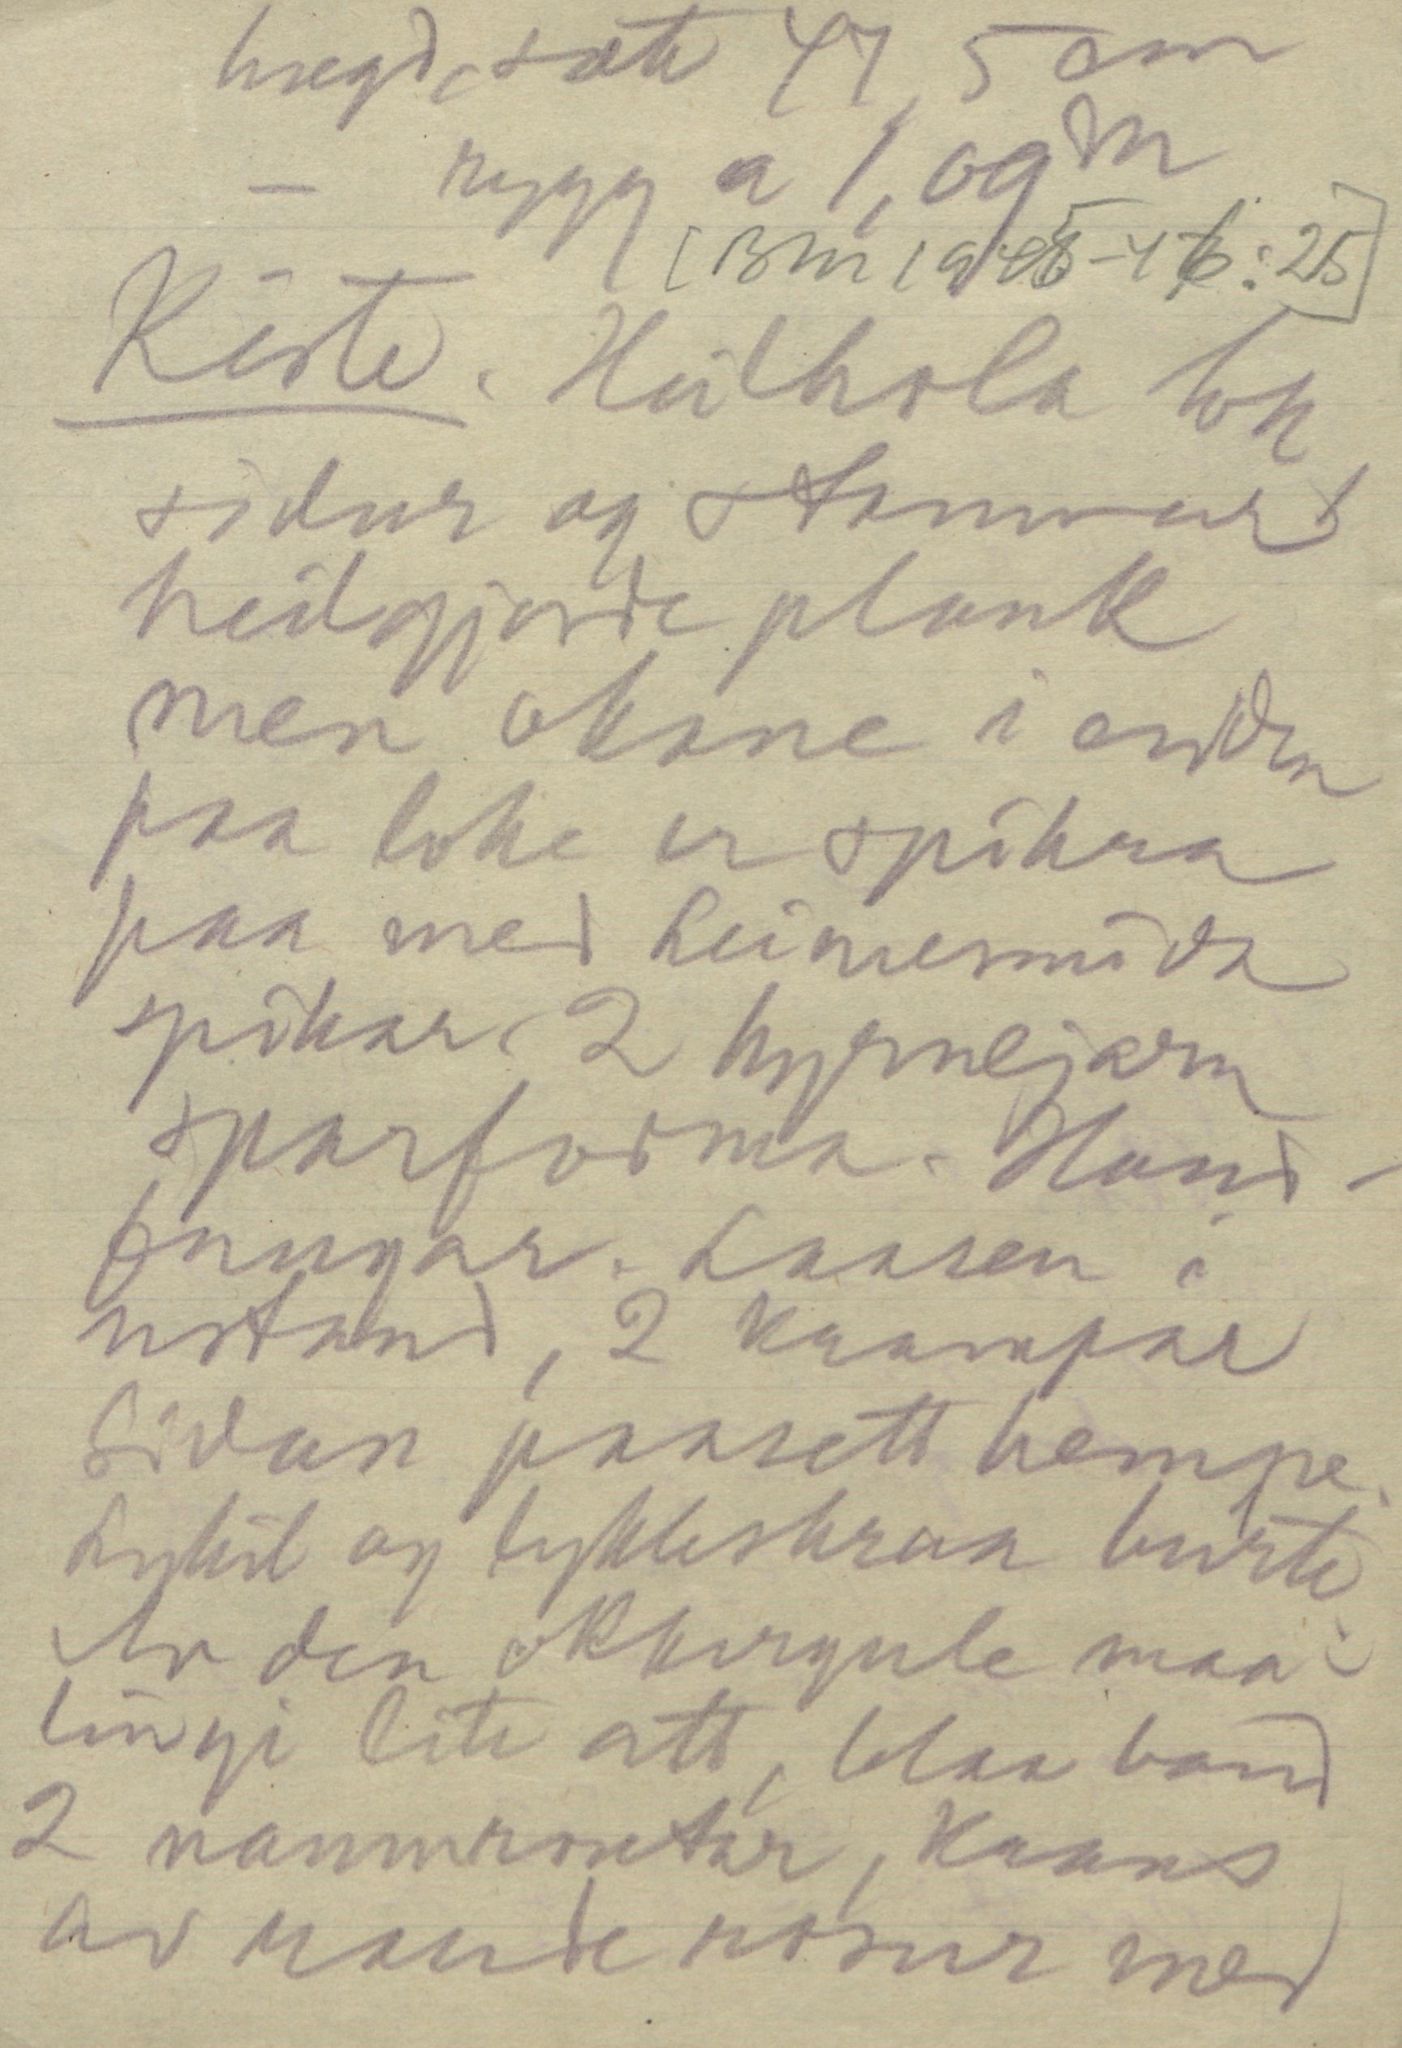 høgd, sæte 47,5 cm
— rygg a 1,09 m
[BM 1945-46:25]
Kiste. Heilhola lok
sidur og
heilgjorde plank
men okane i enden
paa loke er spikra
paa med heimesmida
spikar. 2 hyrnejarn
sparforma. Hand-
fangar. Laasen i
ustand, 2 kaampar
Sidan paasett hempe.
Lykil og lykleskraa burte
Av den okkergule maa-
lingi lite att, blaa band
2 namnrutar, Kaans
av raude rosur med